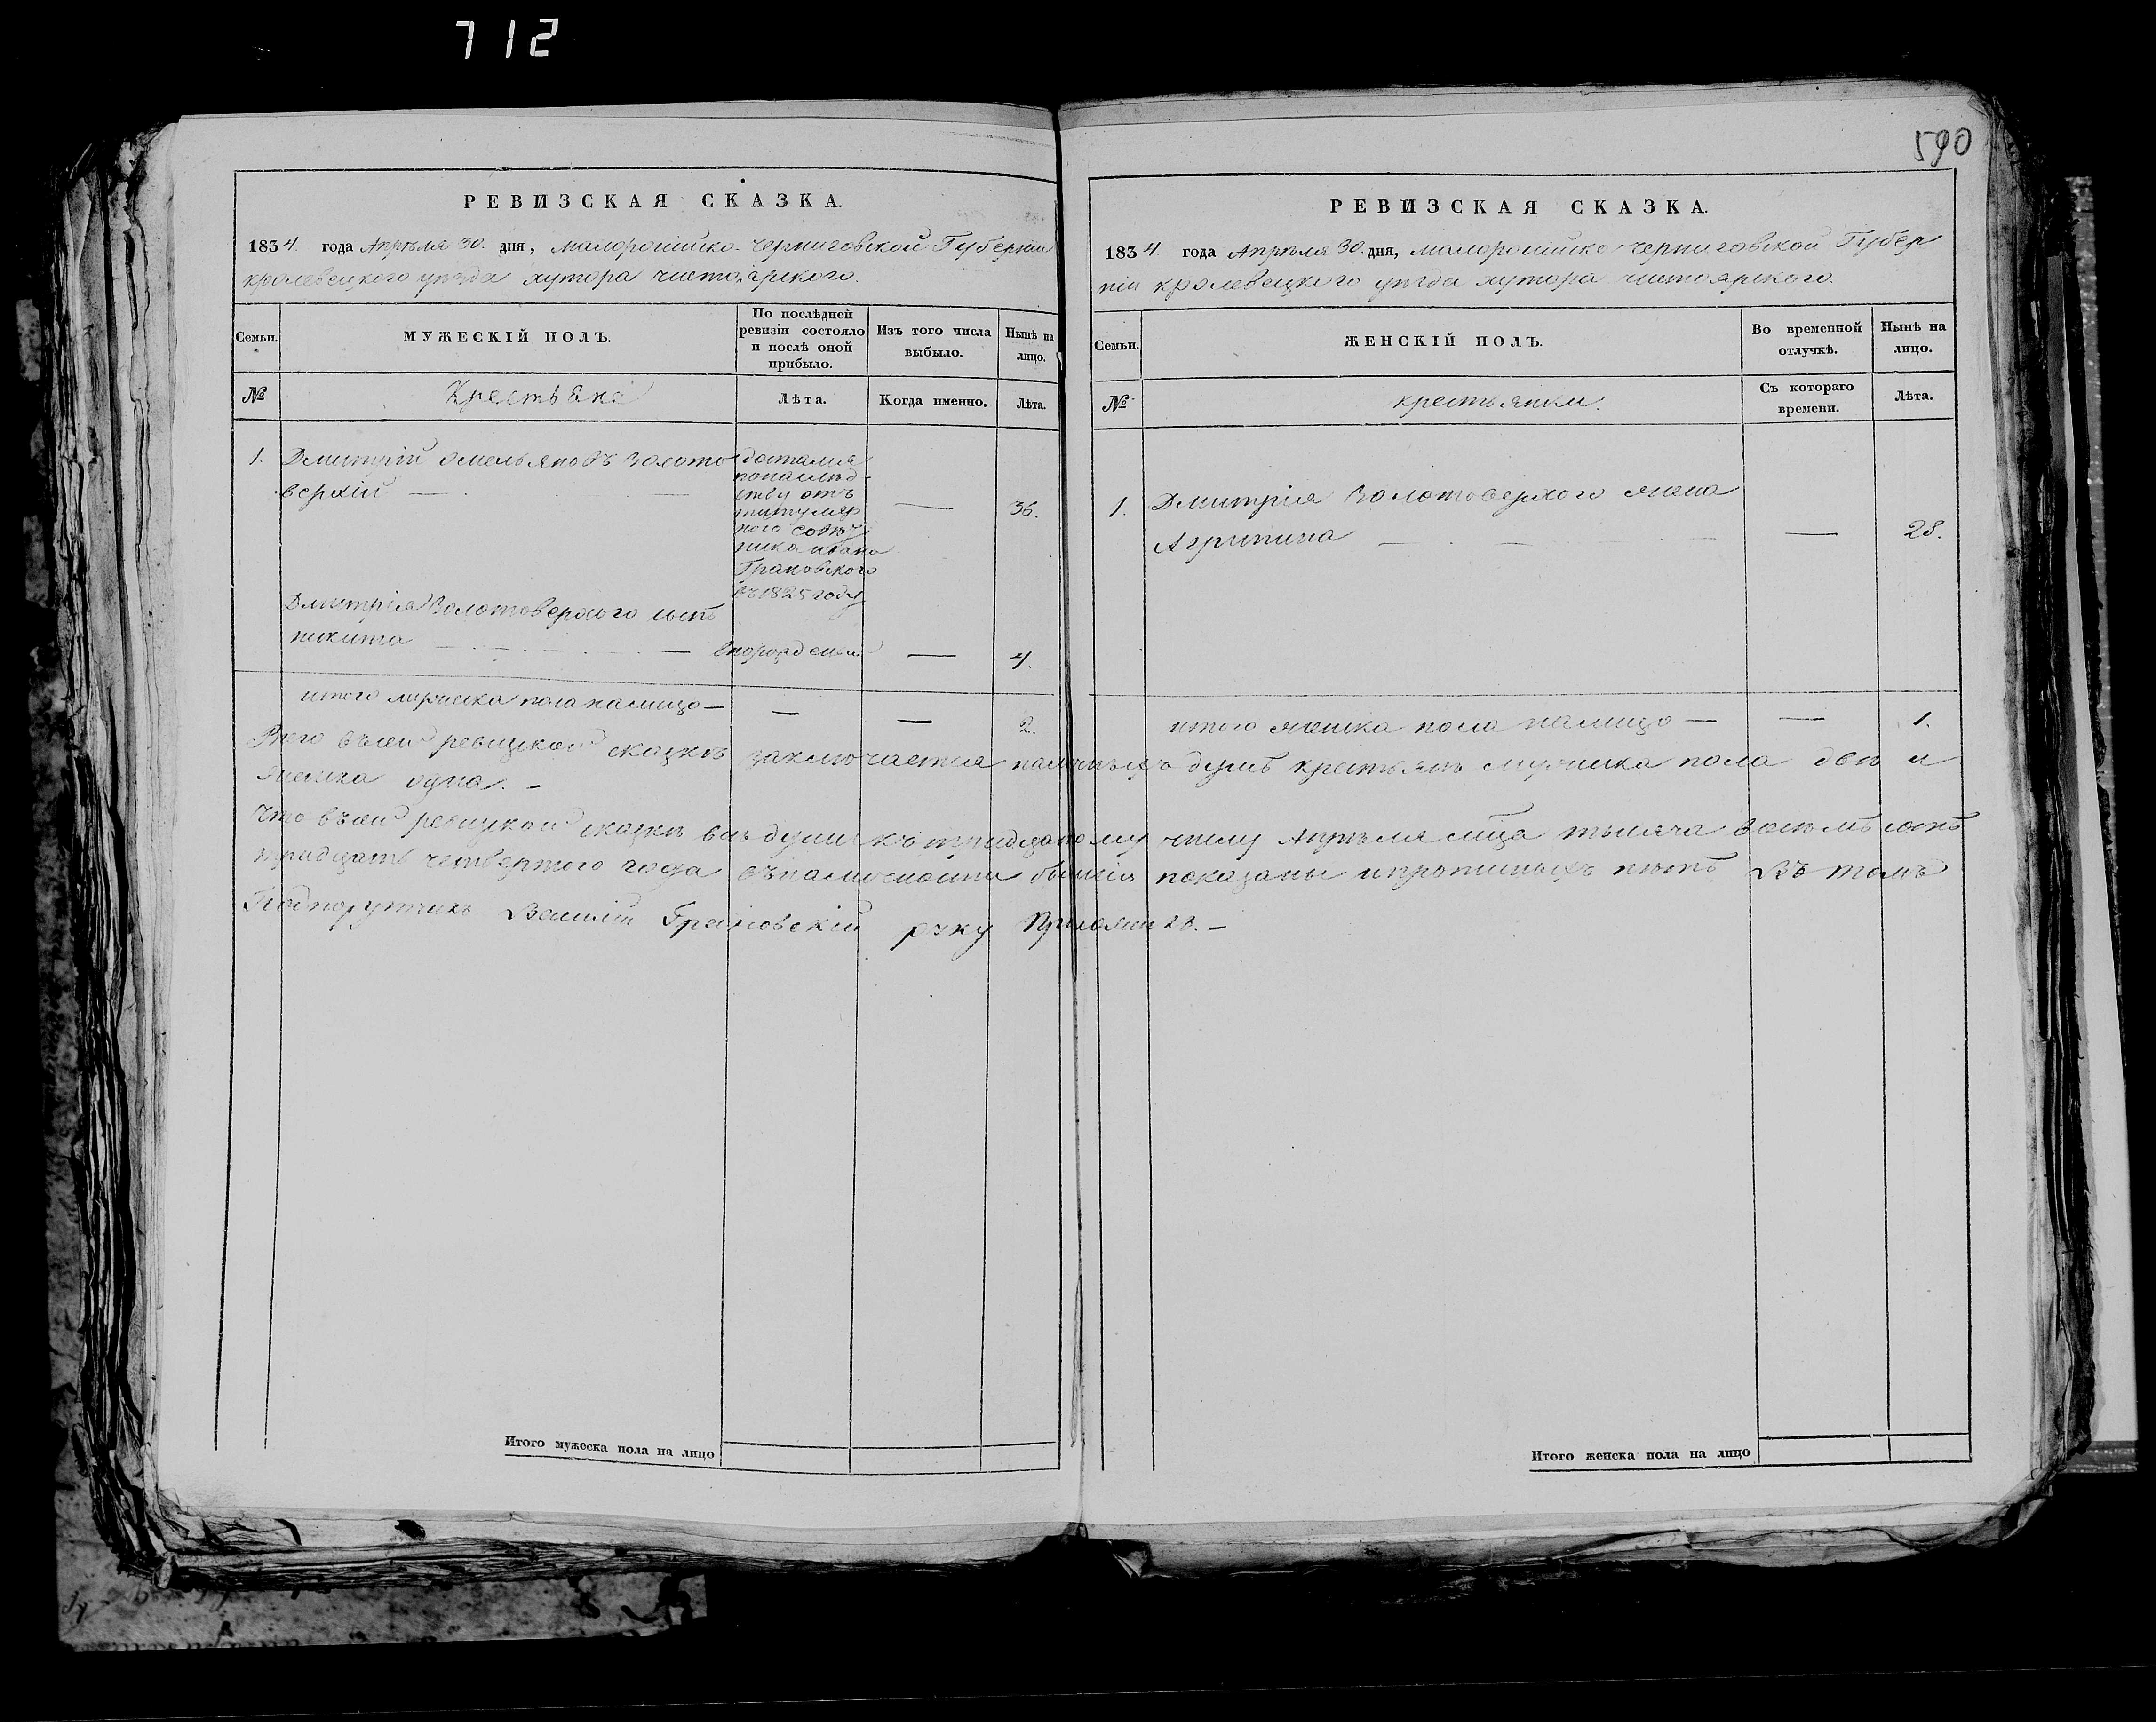 712
590
РЕВИЗСКАЯ СКАЗКА.
1834. года Апреля 30. дня, малоросійско-черниговской Губерніи
кролевецкого уезда хутора чистоярского.
Семьи.
МУЖЕСКІЙ ПОЛЪ.
По послѣдней
ревизіи состояло
и послѣ оной
прибыло.
Изъ того числа
выбыло.
Нынѣ на
лицо.
№
Крестьяне
Лѣта.
Когда именно.
Лѣта.
1.
Дмитрій омельяновъ золото
верхій
достался
понаслед
ству отъ
титуляр
ного совет
ника ивана
Грановского
въ 1825 году
36.
Дмитрія Золотоверхого сынъ
никита
4.
итого мужеска пола налицо —
2.
РЕВИЗСКАЯ СКАЗКА.
1834. года Апреля 30. дня, малоросійско черниговской Губер
ніи кролевецкого уезда хутора чистоярского.
Семьи.
ЖЕНСКІЙ ПОЛЪ.
Во временной
отлучкѣ.
Нынѣ на
лицо.
№
крестьянки.
Съ котораго
времени.
Лѣта.
1.
Дмитрія Золотоверхого жена
Агрипина
28.
итого женска пола налицо —
1.
Всего въсей ревизкой сказкѣ заключается наличныхъ душъ крестьянъ мужеска пола две и
женска одна. —
Что въсей ревизкой сказке все души къ тридцатому числу Апреля мца тысяча восемъ сотъ
тридцать четвертого года въналичности бывшія показаны ипрописныхъ нетъ Въ томъ
Подпорутчикъ Василій Грановскій руку Приложилъ. —
Итого мужеска пола на лицо
Итого женска пола на лицо